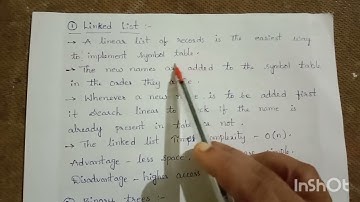 ① Linked List :-
→ A linear list of records is the easiest way
to implement symbol table.
→ The new names are added to the symbol table
in the order they
→ Whenever a new is to be added first
it search linear to if the name is
already present in table or not.
→ The linked list Time complexity - O(n).
Advantage - less space,
Disadvantage - higher access
Binary trees :-
InShot